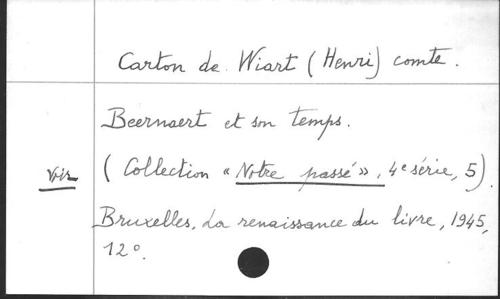 Carton de Wiart (Henri) comte.
Beernaert et son temps.
Voir ( Collection « Notre passé », 4e série, 5).
Bruxelles, La renaissance du livre, 1945,
12°.